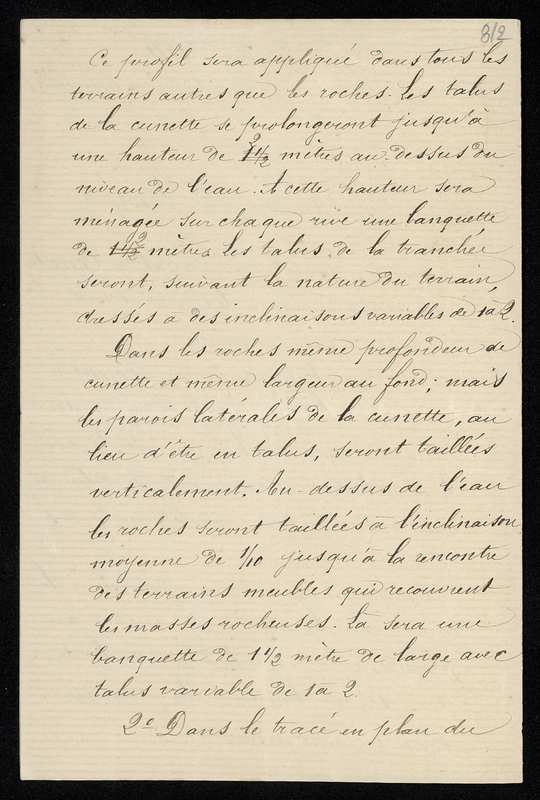 812
Ce profil sera appliqué dans tous les
terrains autres que les roches. Les talus
de la cunette se prolongeront jusqu'à
une hauteur de 2 mètres au-dessus du
niveau de l'eau. A cette hauteur sera
ménagée sur chaque rive une banquette
de 2 mètres. Les talus de la tranchée
seront, suivant la nature du terrain,
dressés a des inclinaisons variables de 1 à 2.
Dans les roches même profondeur de
cunette et même largeur au fond; mais
les parois latérales de la cunette, au
lieu d'être en talus, seront taillées
verticalement. Au-dessus de l'eau
les roches seront taillées à l'inclinaison
moyenne de 1/10 jusqu'à la rencontre
des terrains meubles qui recouvrent
les masses rocheuses. Là sera une
banquette de 1 1/2 mètre de large avec
talus variable de 1 à 2.
2° Dans le tracé en plan du